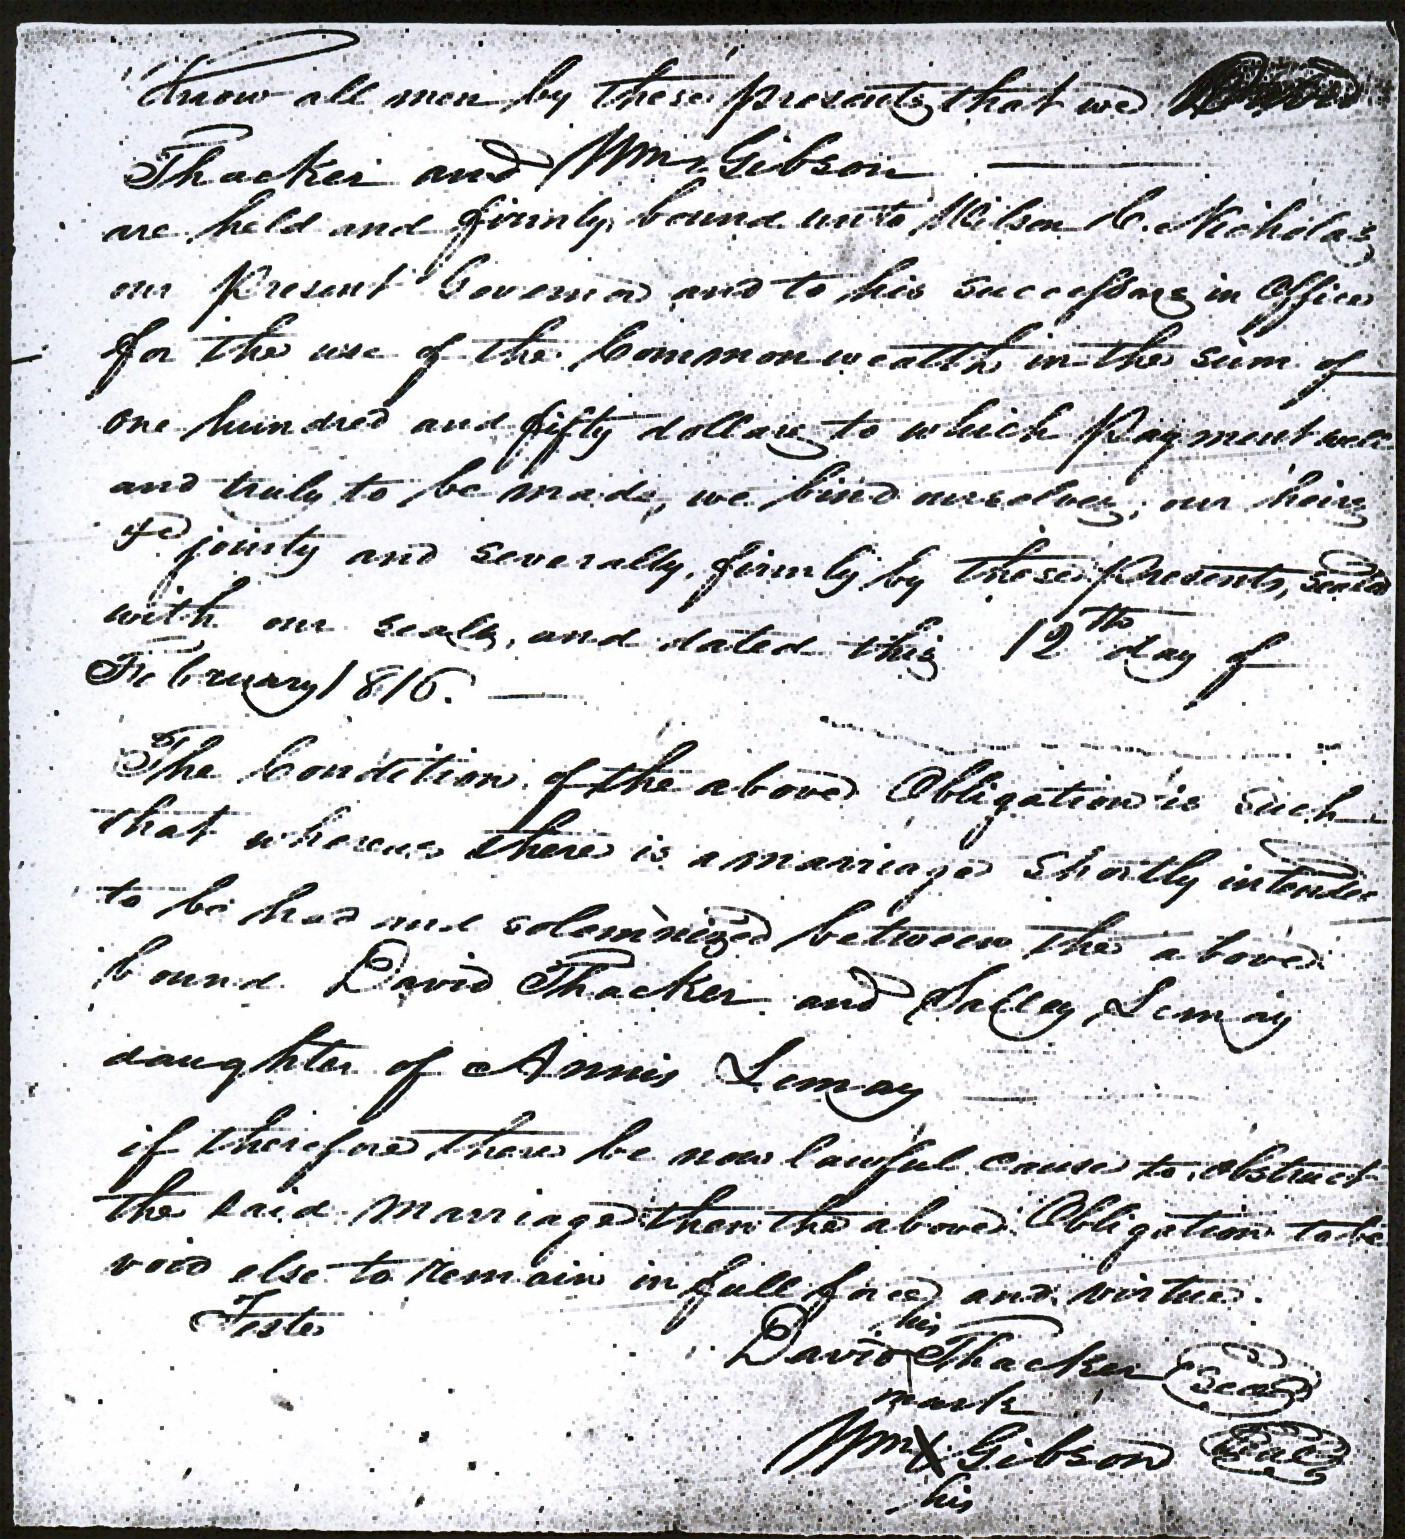 Know all men by these presents, that we David
Thacker and Wm. Gibson
are held and firmly bound unto Wilson C. Nicholas
our Present Governor and to his successors in Office
for the use of the Commonwealth in the sum of
one hundred and fifty dollars, to which Payment well
and truly to be made, we bind ourselves, our heirs
&c jointy and severally, firmly by these Presents, sealed
with our seals, and dated this 12th day of
February 1816.
The Condition of the above Obligation is such
that whereas there is a marriage shortly intended
to be had and solemnized between the above
bound David Thacker and Salley Lemay
daughter of Annis Lemay
if therefore there be now lawful cause to obstruct
the said marriage then the above Obligation to be
void else to remain in full force and virtue.
Teste
his
David Thacker Seal
mark
Wm X Gibson Seal
his